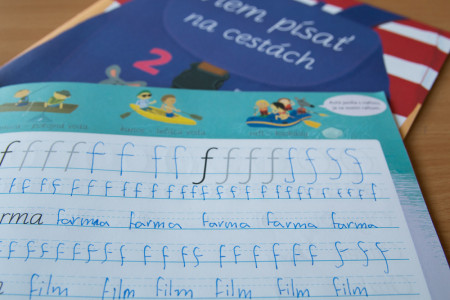 Viem písať
na cestách
2
f f f f f f f f f f f f f f f f
f f f f f f f f f f f f f f f f f f f f f f f f f f f
farma farma farma farma farma farma
f f f f f f f f f f f f f f f f f f f f f f f
film film film film film film